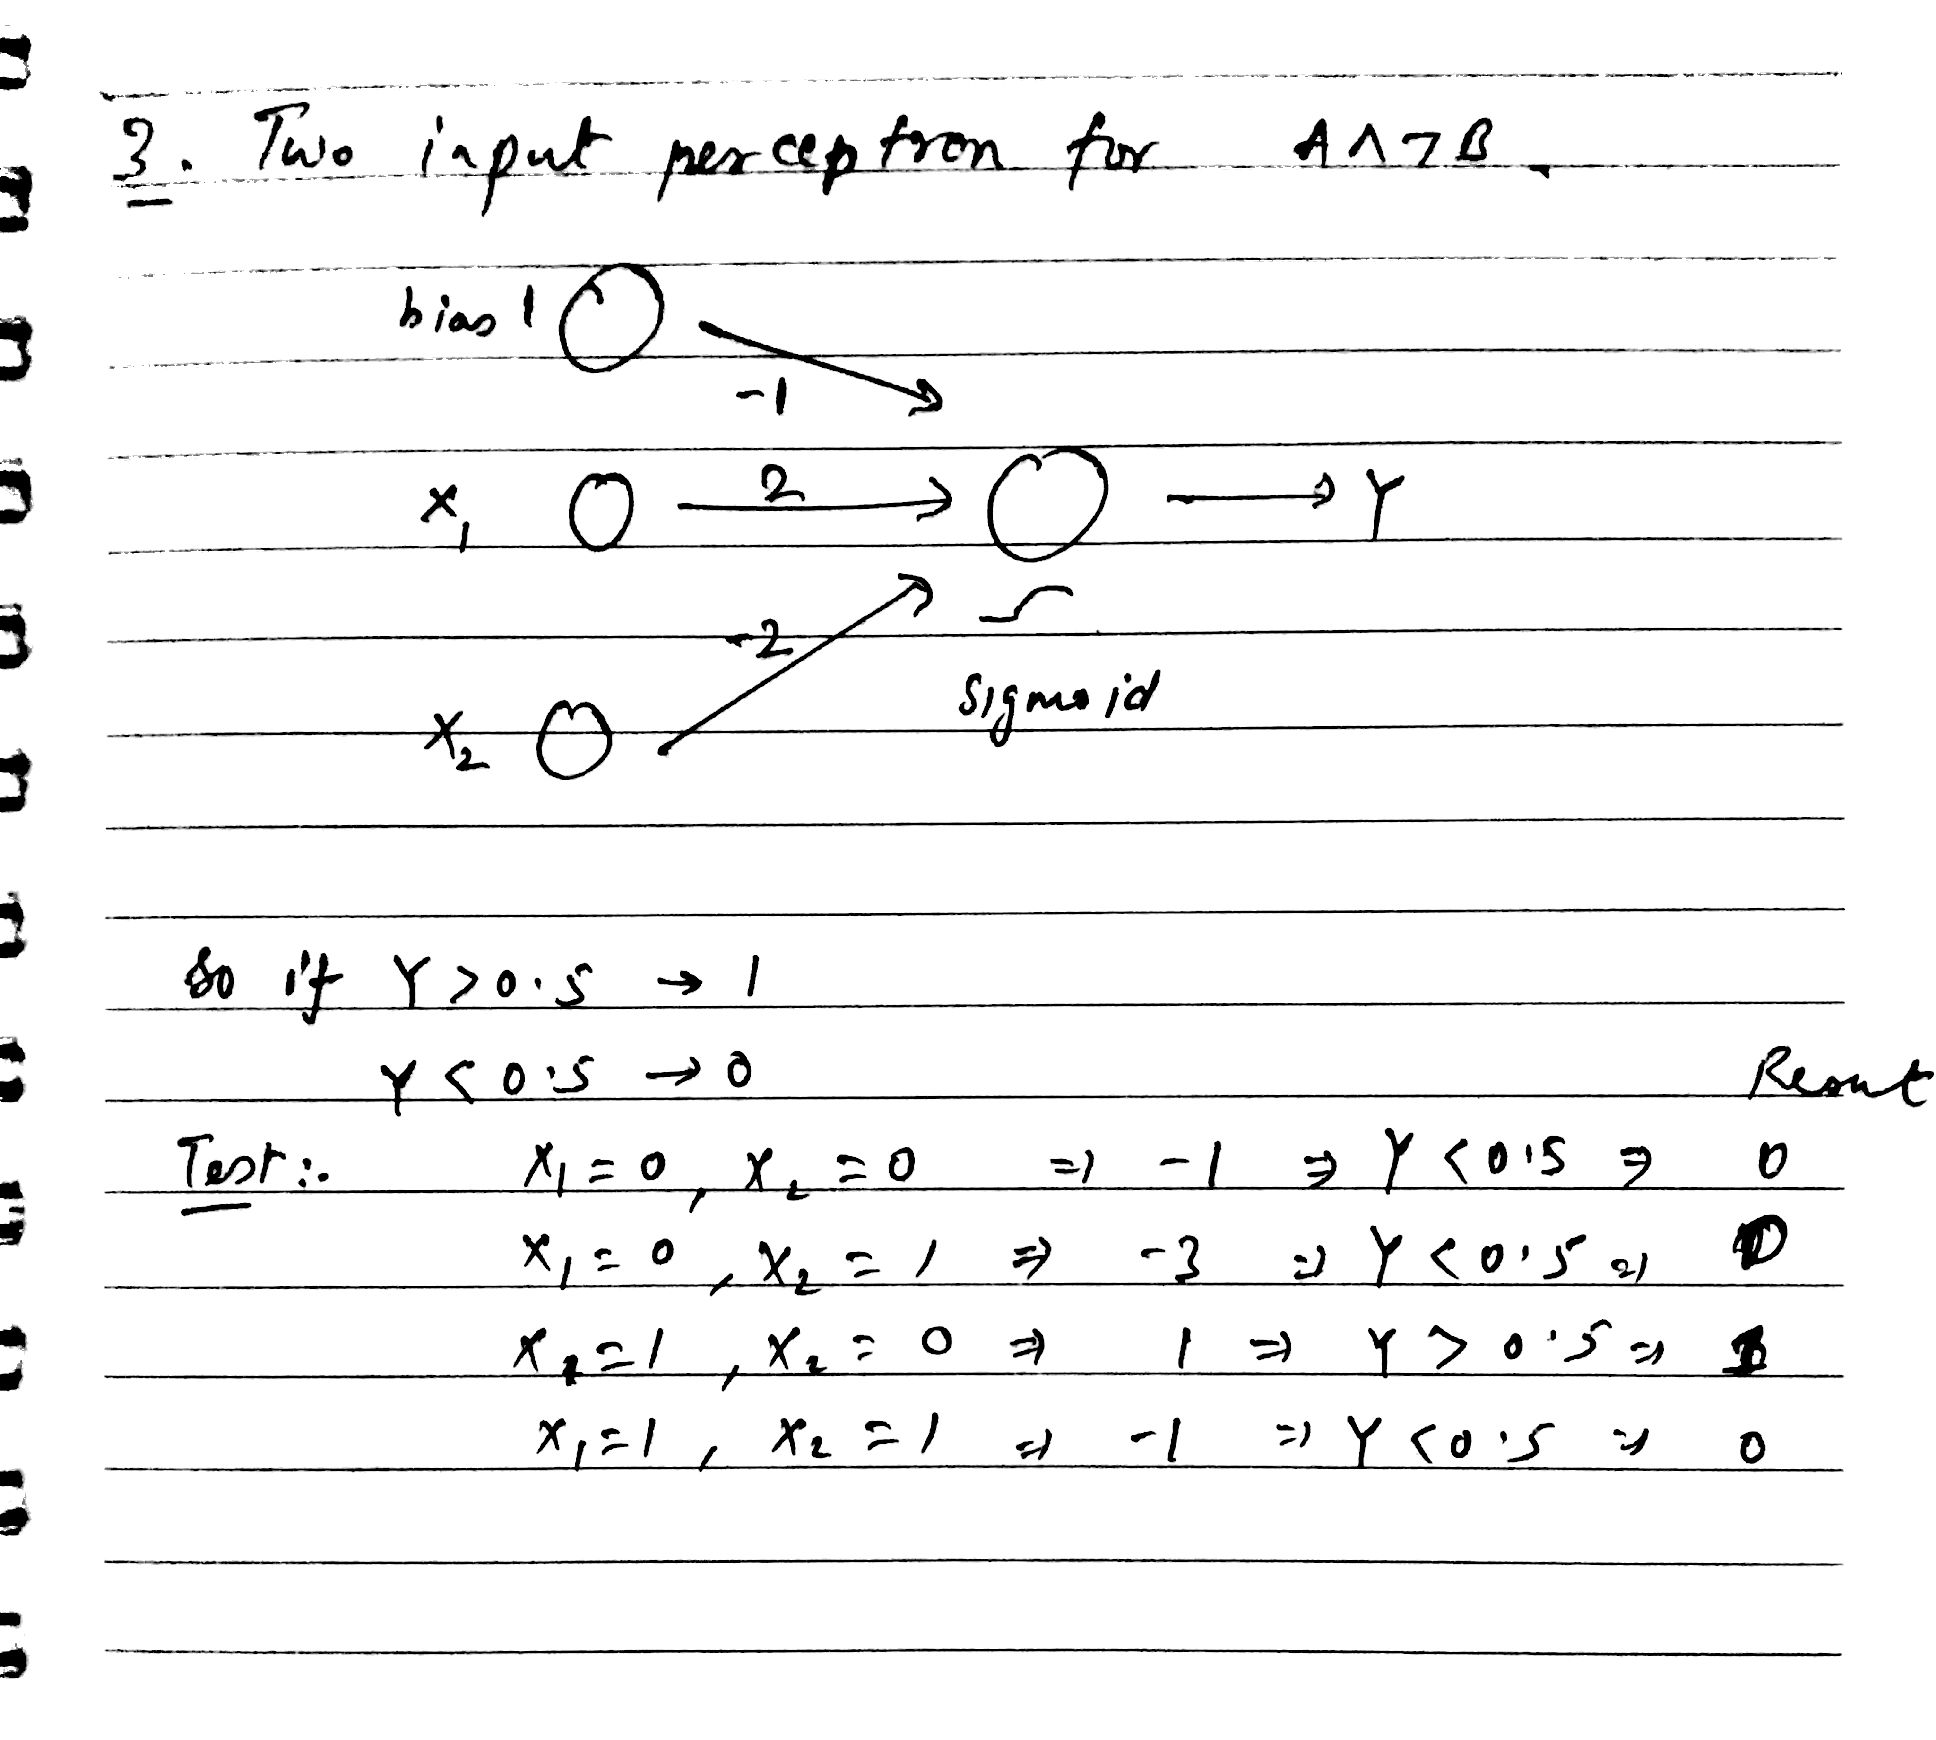 3. Two input perceptron for A∧¬B.
bias 1
-1
X₁ 2 Y
-2
X₂ sigmoid
So if Y > 0.5 → 1
Y < 0.5 → 0
Result
Test:- X₁ = 0, X₂ = 0 ⇒ -1 ⇒ Y < 0.5 ⇒ 0
X₁ = 0, X₂ = 1 ⇒ -3 ⇒ Y < 0.5 ⇒ 0
X₁ = 1, X₂ = 0 ⇒ 1 ⇒ Y > 0.5 ⇒ 1
X₁ = 1, X₂ = 1 ⇒ -1 ⇒ Y < 0.5 ⇒ 0